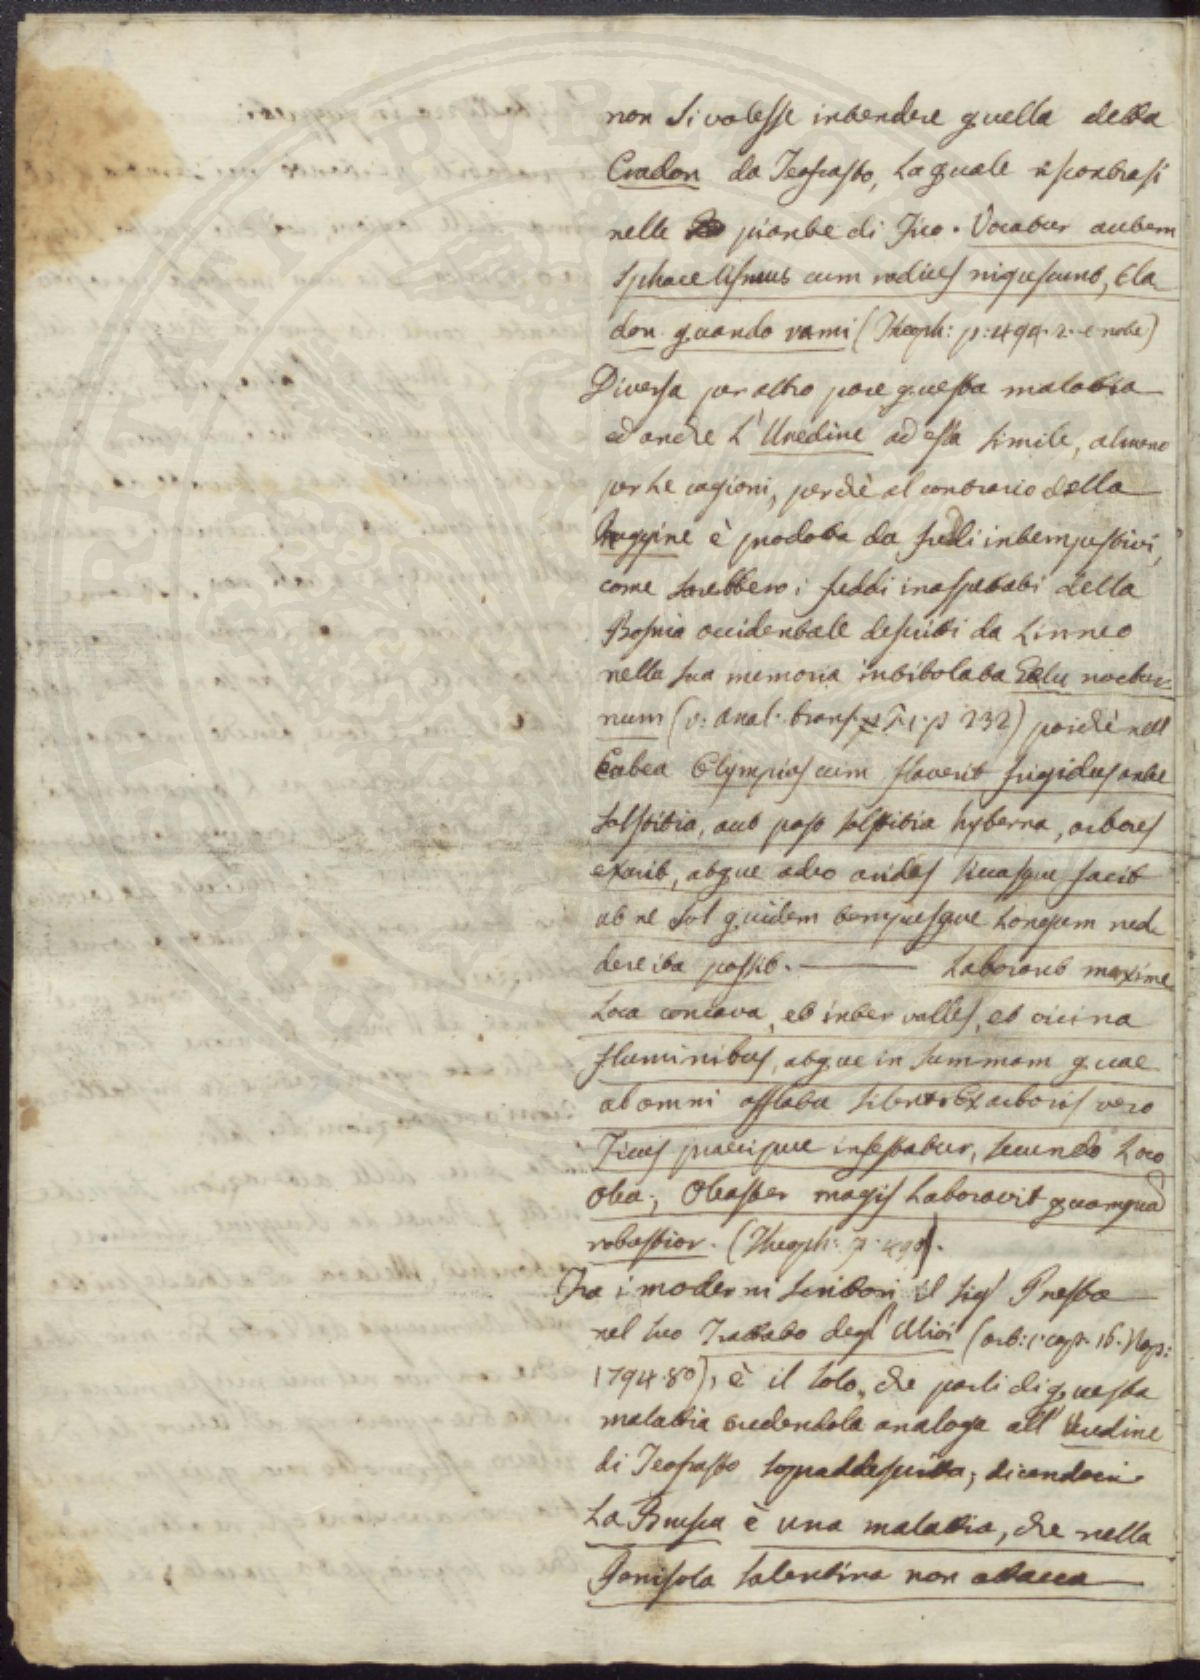 non si volesse intendere quella detta
Cradon da Teofrasto, la quale riscontrasi
nelle piante di Fico. Vocatur autem
sphacelismus cum radices nigrescunt, Cla
don quando rami (Theoph: p: 499. 2. e note)
Diversa per altro pare questa malattia
ed anche l'Uredine ad essa simile, almeno
per le cagioni, perchè al contrario della
Ruggine è prodotta da freddi intempestivi,
come sarebbero i freddi inaspettati della
Bosnia occidentale descritti da Linneo
nella sua memoria intitolata Gelu noctur-
num (v: Anal: trans. T. 1. p 232) poichè nell
Eubea Olympias cum flaverit frigidus ante
solstitia, aut post solstitia hyberna, arbores
exurit, atque adeo aridas siccasque facit
ut ne sol quidem tempusque longum red
dere ita possit. ——— Laborant maxime
loca concava, et inter valles, et vicina
fluminibus, atque in summam quae
ab omni afflatu silent. Ex arboris vero
Ficus praecipue infestatur, secundo loco
olea; Oleaster magis laboravit quamquã
robustior. (Theoph: p: 498).
Tra i moderni scrittori il sigʳ Presta
nel suo Trattato degl' Ulivi (art: 1: cap. 16. Nap:
1794. 8º), è il solo, che parli di questa
malattia credendola analoga all' Uredine
di Teofrasto sopraddescritta, dicendoci
La Brusca è una malattia, che nella
Penisola Salentina non attacca